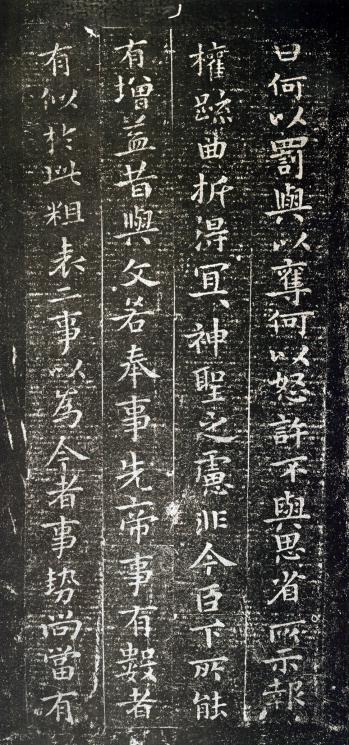 曰何以罰與以奪何以怒許不與思省所示報
權䟽曲折得冝神聖之慮非今臣下所能
有增益昔與文若奉事先帝事有數者
有似於此粗表二事以為今者事勢尚當有